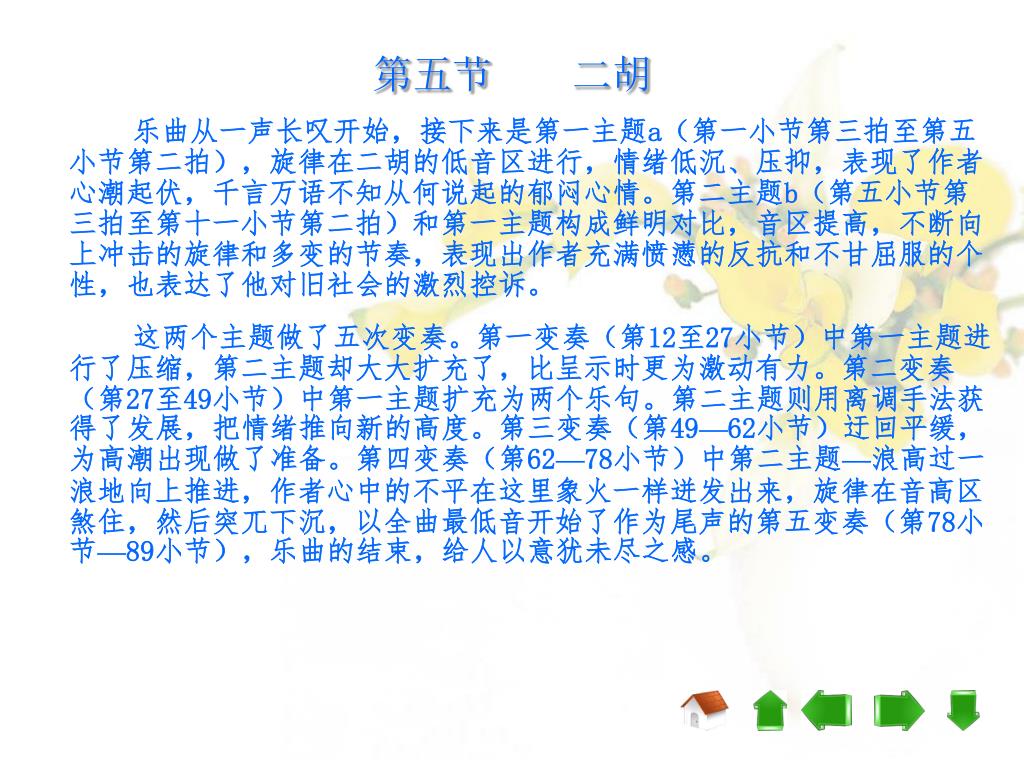 第五节　　二胡
乐曲从一声长叹开始，接下来是第一主题a（第一小节第三拍至第五
小节第二拍），旋律在二胡的低音区进行，情绪低沉、压抑，表现了作者
心潮起伏，千言万语不知从何说起的郁闷心情。第二主题b（第五小节第
三拍至第十一小节第二拍）和第一主题构成鲜明对比，音区提高，不断向
上冲击的旋律和多变的节奏，表现出作者充满愤懑的反抗和不甘屈服的个
性，也表达了他对旧社会的激烈控诉。
这两个主题做了五次变奏。第一变奏（第12至27小节）中第一主题进
行了压缩，第二主题却大大扩充了，比呈示时更为激动有力。第二变奏
（第27至49小节）中第一主题扩充为两个乐句。第二主题则用离调手法获
得了发展，把情绪推向新的高度。第三变奏（第49—62小节）迂回平缓，
为高潮出现做了准备。第四变奏（第62—78小节）中第二主题—浪高过一
浪地向上推进，作者心中的不平在这里象火一样迸发出来，旋律在音高区
煞住，然后突兀下沉，以全曲最低音开始了作为尾声的第五变奏（第78小
节—89小节），乐曲的结束，给人以意犹未尽之感。